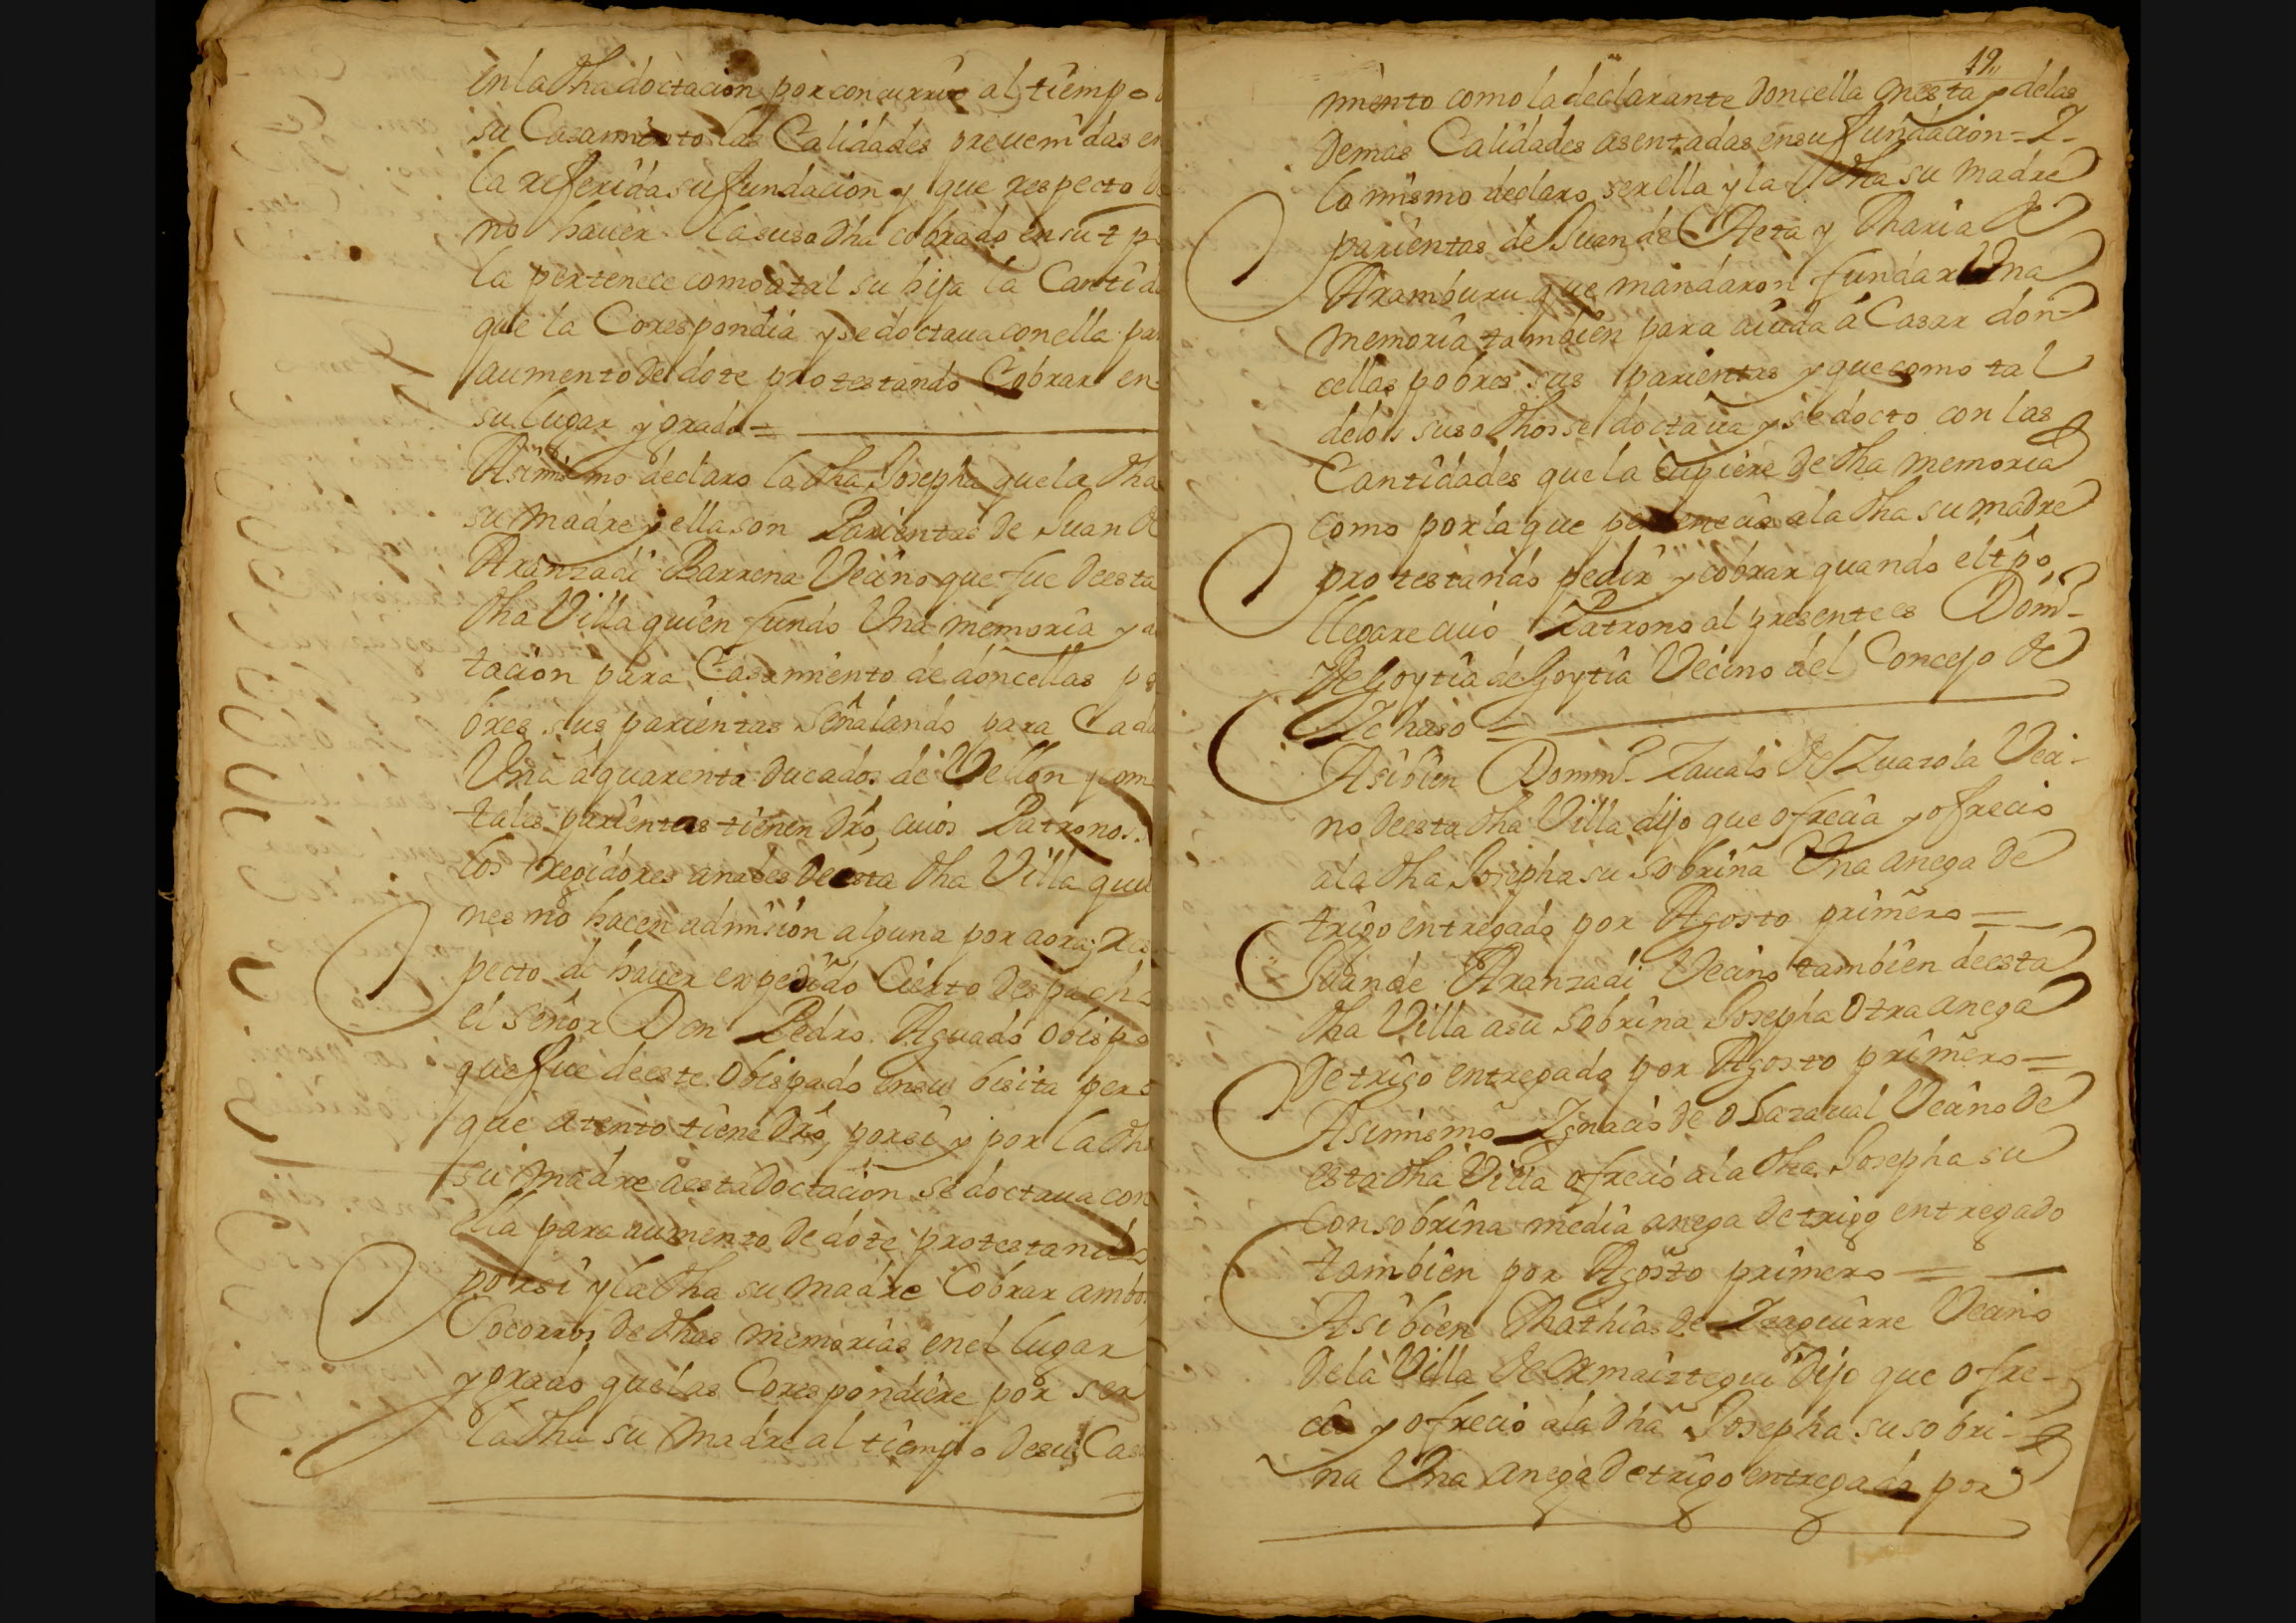 en la dha doctacion por concurrir al tiempo d
su Casamiento las Calidades preuenidas en
la referida su fundacion y que respecto de
no hauer la suso dha cobrado en su tpo
la pertenece como a tal su hija la Cantida
que la Corespondia y se doctaua con ella par
aumento de dote protestando Cobrar en
su lugar y grado =
Asimismo declaro la dha Josepha que la dha
su madre y ella son Parientas de Juan de
Aranzadi Barrena Vecino que fue de esta
dha Villa quien fundo Vna memoria y
tacion para Casamiento de doncellas po
bres sus parientas señalando para Cada
Vna a quarenta ducados de Vellon y com
tales parientas tienen dro, cuios Patronos
los regidores anales de esta dha Villa quie
nes no hacen admision alguna por aora, res
pecto de hauer expedido Cierto despacho
el señor Don Pedro Aguado obispo
que fue de este Obispado en su bisita pero
que atento tiene dro, por si y por la dha
su madre a esta doctacion se doctaua con
ella para aumento de dote protestando
por si y la dha su madre Cobrar ambos
Socorros de dhas memorias en el lugar
y grado que las Corespondiere por ser
la dha su madre al tiempo de su Casa
19
miento como la declarante doncella onesta y de las
demas Calidades asentadas en su fundacion = I
lo mismo declaro ser ella y la dha su madre
parientas de Juan de Aeta y Maria de
Aramburu que mandaron fundar Vna
memoria tambien para aiuda a Casar don
cellas pobres sus parientas y que como tal
de los suso dhos se doctaua y se docto con las
Cantidades que la cupiere de dha memoria
como por la que pertenecia a la dha su madre
protestando pedir y cobrar quando el tpo
llegare cuio Patrono al presente es Dom
de Goytia de Goytia Vecino del Concejo de
Ichaso =
Asi bien Domin Zaualo de Zuazola Veci-
no de esta dha Villa dijo que ofrecia y ofrecio
a la dha Josepha su sobrina Vna anega de
trigo entregado por Agosto primero =
Juan de Aranzadi Vecino tambien de esta
dha Villa a su sobrina Josepha Otra anega
de trigo entregado por Agosto primero =
Asimismo Ignacio de Olazaual Vecino de
esta dha Villa ofrecio a la dha Josepha su
con sobrina media anega de trigo entregado
tambien por Agosto primero =
Asi bien Mathias de Izaguirre Vecino
de la Villa de Ormaiztegui dijo que ofre-
cia y ofrecio a la dha Josepha su sobri-
na Vna anega de trigo entregada por